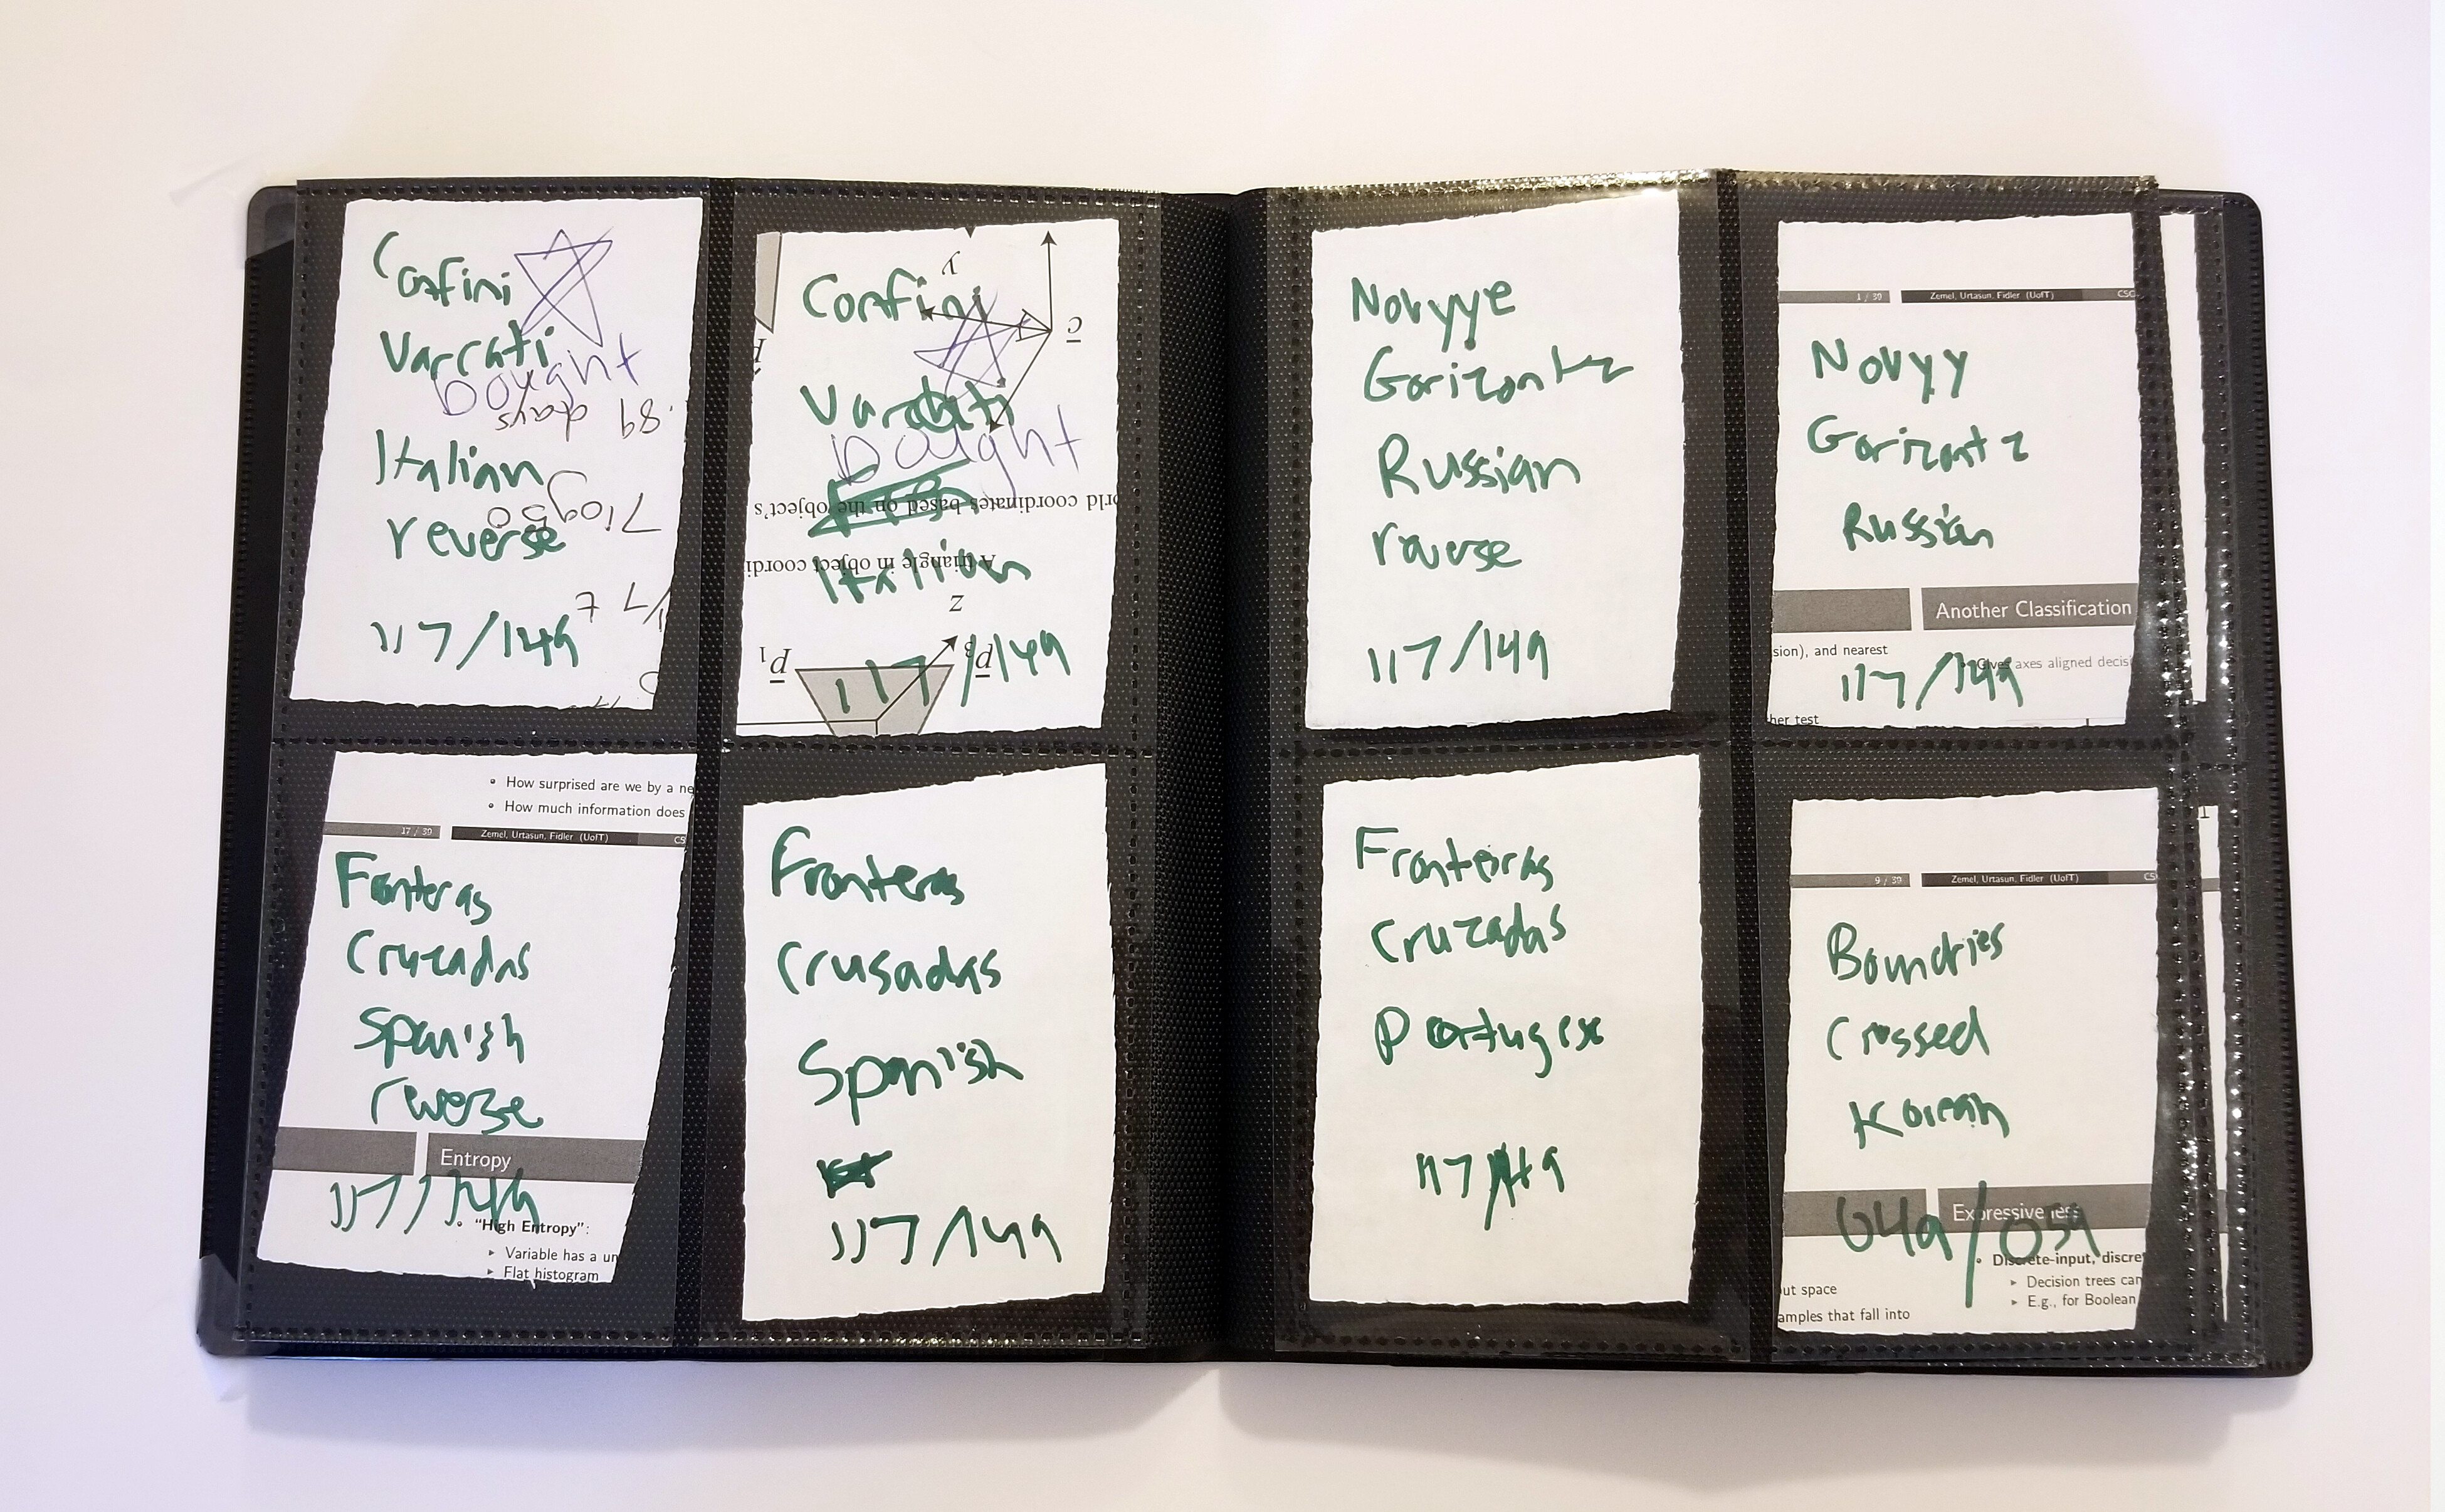 Confini
Varcati
bought
89 days
Italian
reverse
117/149
y
Confini
c
Varcati
bought
rld coordinates based on the object's
A triangle in object coordi
Italian
z
p1
p3
117/149
Novyye
Gorizontz
Russian
reverse
117/149
1 / 39 Zemel, Urtasun, Fidler (UofT) CSC
Novyy
Gorizontz
Russian
Another Classification
sion), and nearest
Gives axes aligned decis
117/149
her test
How surprised are we by a ne
How much information does
17 / 39 Zemel, Urtasun, Fidler (UofT) CS
Fonteras
Cruzadas
Spanish
reverse
Entropy
117/149
"High Entropy":
Variable has a un
Flat histogram
Fronteras
Crusadas
Spanish
117/149
Fronteiras
Cruzadas
Portugese
117/149
9 / 39 Zemel, Urtasun, Fidler (UofT) CS
Boundries
Crossed
Korean
Expressiveness
049/059
Discrete-input, discre
ut space
Decision trees can
E.g., for Boolean
amples that fall into